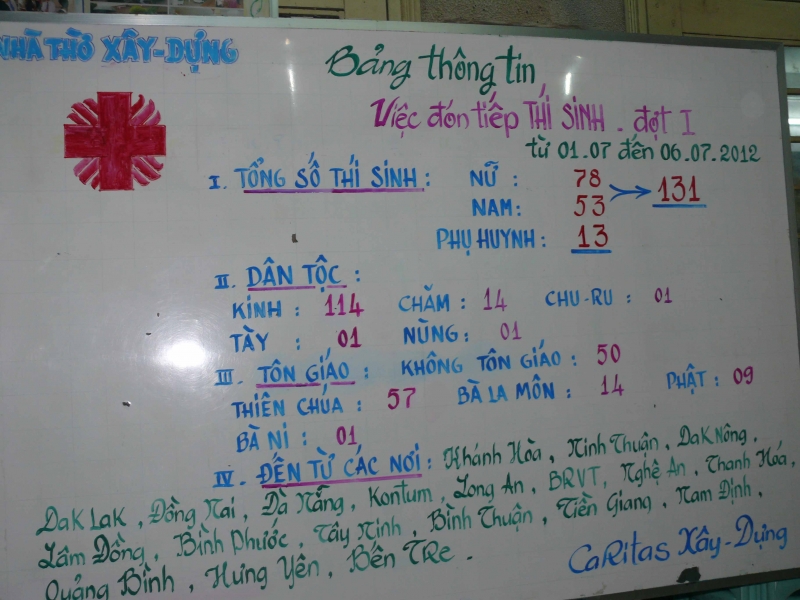 NHÀ THỜ XÂY-DỰNG
Bảng thông tin
Việc đón tiếp THÍ SINH. đợt I
từ 01.07 đến 06.07.2012
I. TỔNG SỐ THÍ SINH: NỮ: 78
131
NAM: 53
PHỤ HUYNH: 13
II. DÂN TỘC:
KINH: 114 CHĂM: 14 CHU-RU: 01
TÀY: 01 NÙNG: 01
III. TÔN GIÁO: KHÔNG TÔN GIÁO: 50
THIÊN CHÚA: 57 BÀ LA MÔN: 14 PHẬT: 09
BÀ NI: 01
IV. ĐẾN TỪ CÁC NƠI: Khánh Hòa, Ninh Thuận, Dak Nông,
Dak Lak, Đồng Nai, Đà Nẵng, Kontum, Long An, BRVT, Nghệ An, Thanh Hóa,
Lâm Đồng, Bình Phước, Tây Ninh, Bình Thuận, Tiền Giang, Nam Định,
Quảng Bình, Hưng Yên, Bến TRe.
CaRitas Xây-Dựng